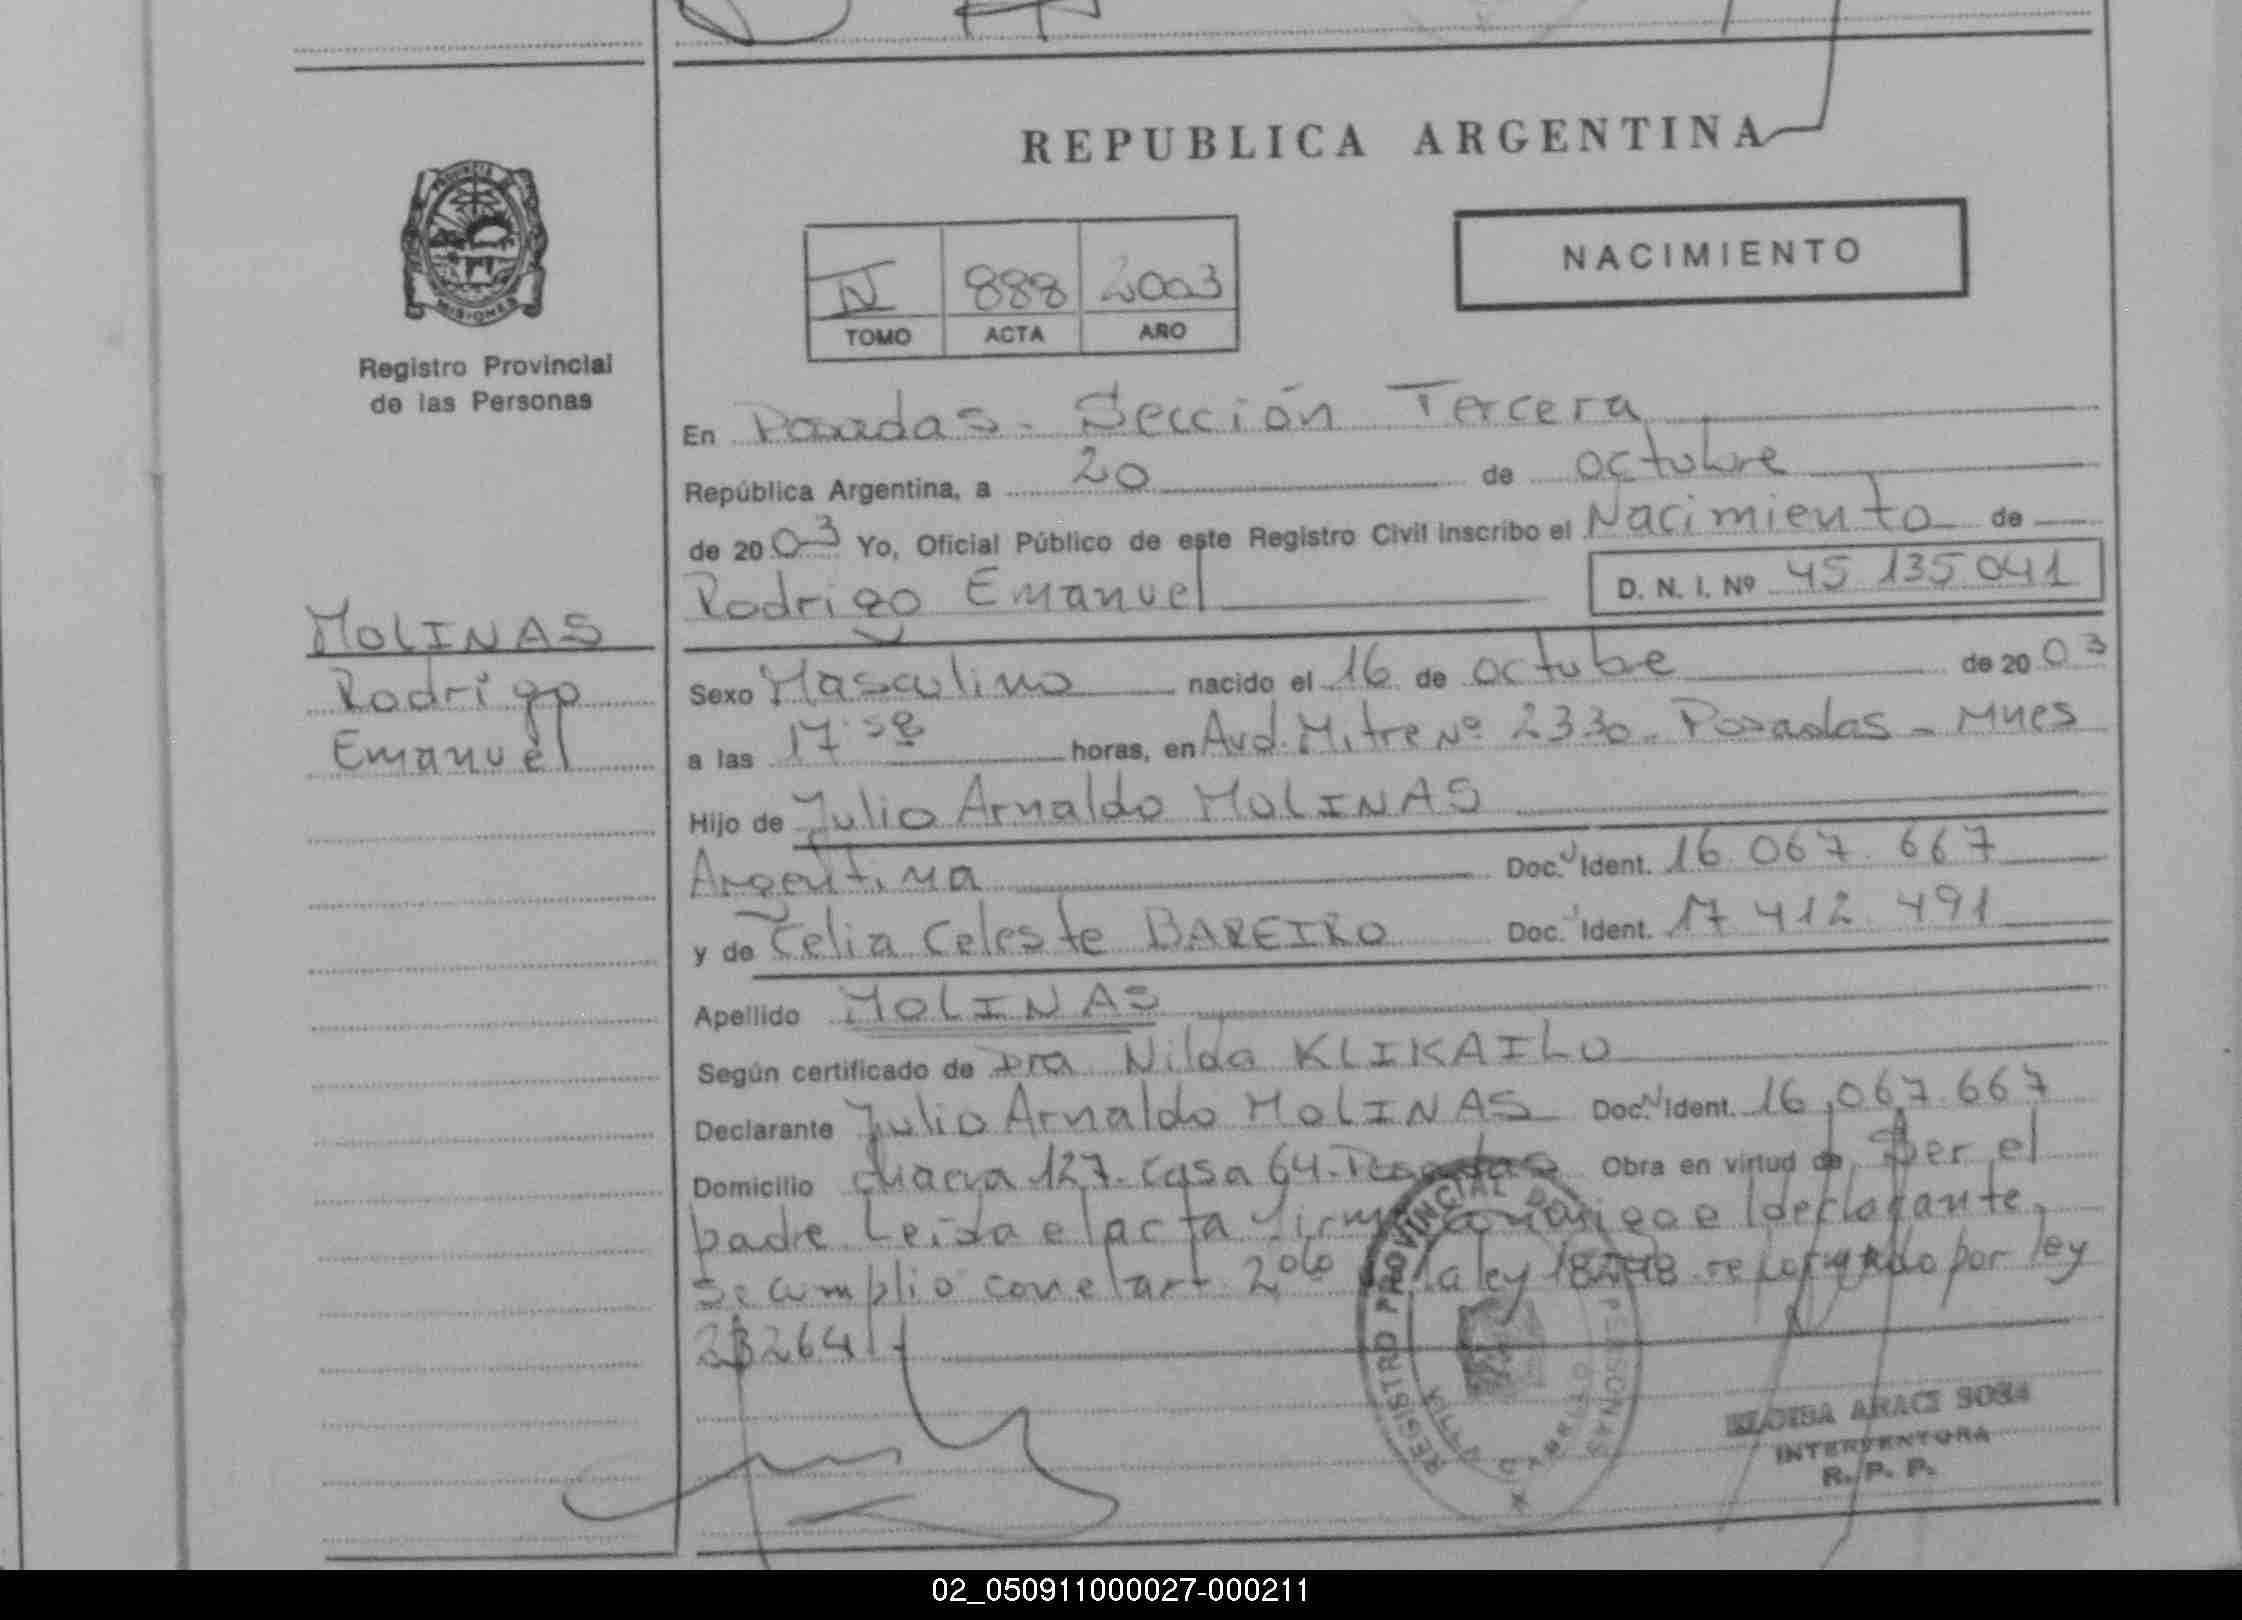 REPUBLICA ARGENTINA
NACIMIENTO
888 2003
TOMO ACTA AÑO
PROVINCIA DE
MISIONES
Registro Provincial
de las Personas
MOLINAS
Rodrigo
Emanuel
En Posadas - Sección Tercera
República Argentina, a 20 de octubre
de 2003 Yo, Oficial Público de este Registro Civil inscribo el Nacimiento de
Rodrigo Emanuel D. N. I. Nº 45 135 041
Sexo Masculino nacido el 16 de octubre de 2003
a las 17 horas, en Avd. Mitre Nº 2330 - Posadas - Mnes
Hijo de Julio Arnaldo MOLINAS
Argentina Doc. Ident. 16 067 667
y de Celia Celeste BAREIRO Doc. Ident. 17 412 491
Apellido MOLINAS
Según certificado de Dra Nilda KLIKAILO
Declarante Julio Arnaldo MOLINAS Doc. Ident. 16,067.667
Domicilio chacra 127. Casa 64. Posadas Obra en virtud de Ser el
padre Leida el acta firma conmigo el declarante
Se cumplio con el art 2º la ley 18248 por ley
23264
REGISTRO PROVINCIAL DE PERSONAS
ELOISA ARACI SOSA
INTERVENTORA
R. P. P.
02_050911000027-000211